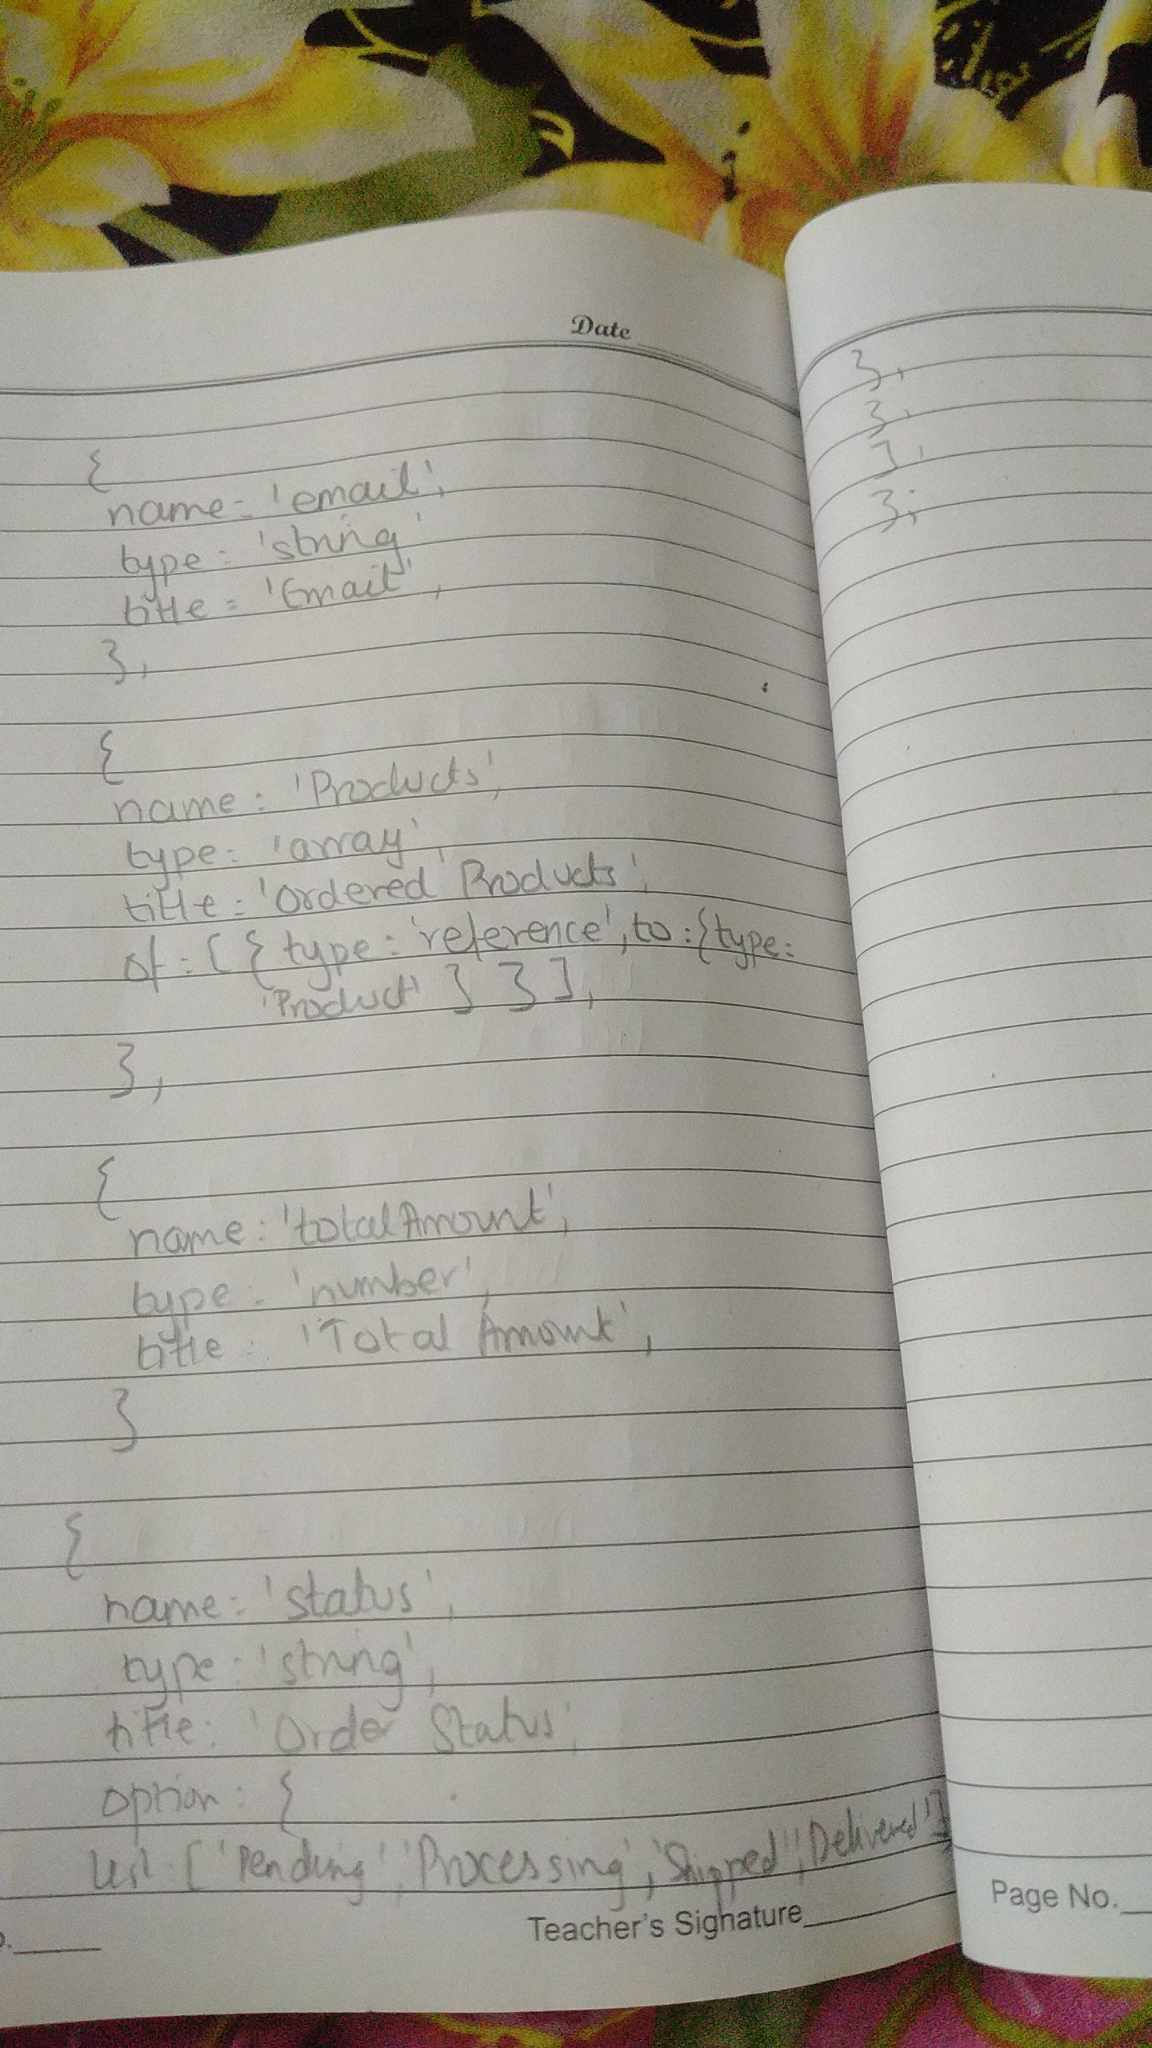 Date
{
name: 'email',
type: 'string'
title: 'Email',
},
{
name: 'Products',
type: 'array',
title: 'Ordered Products',
of: [{ type: 'reference', to: {type:
'Product' } }],
},
{
name: 'totalAmount',
type: 'number',
title: 'Total Amount',
}
{
name: 'status',
type: 'string',
title: 'Order Status',
option: {
list: ['Pending', 'Processing', 'Shipped', 'Delivered']
Teacher's Signature
},
},
],
};
Page No.